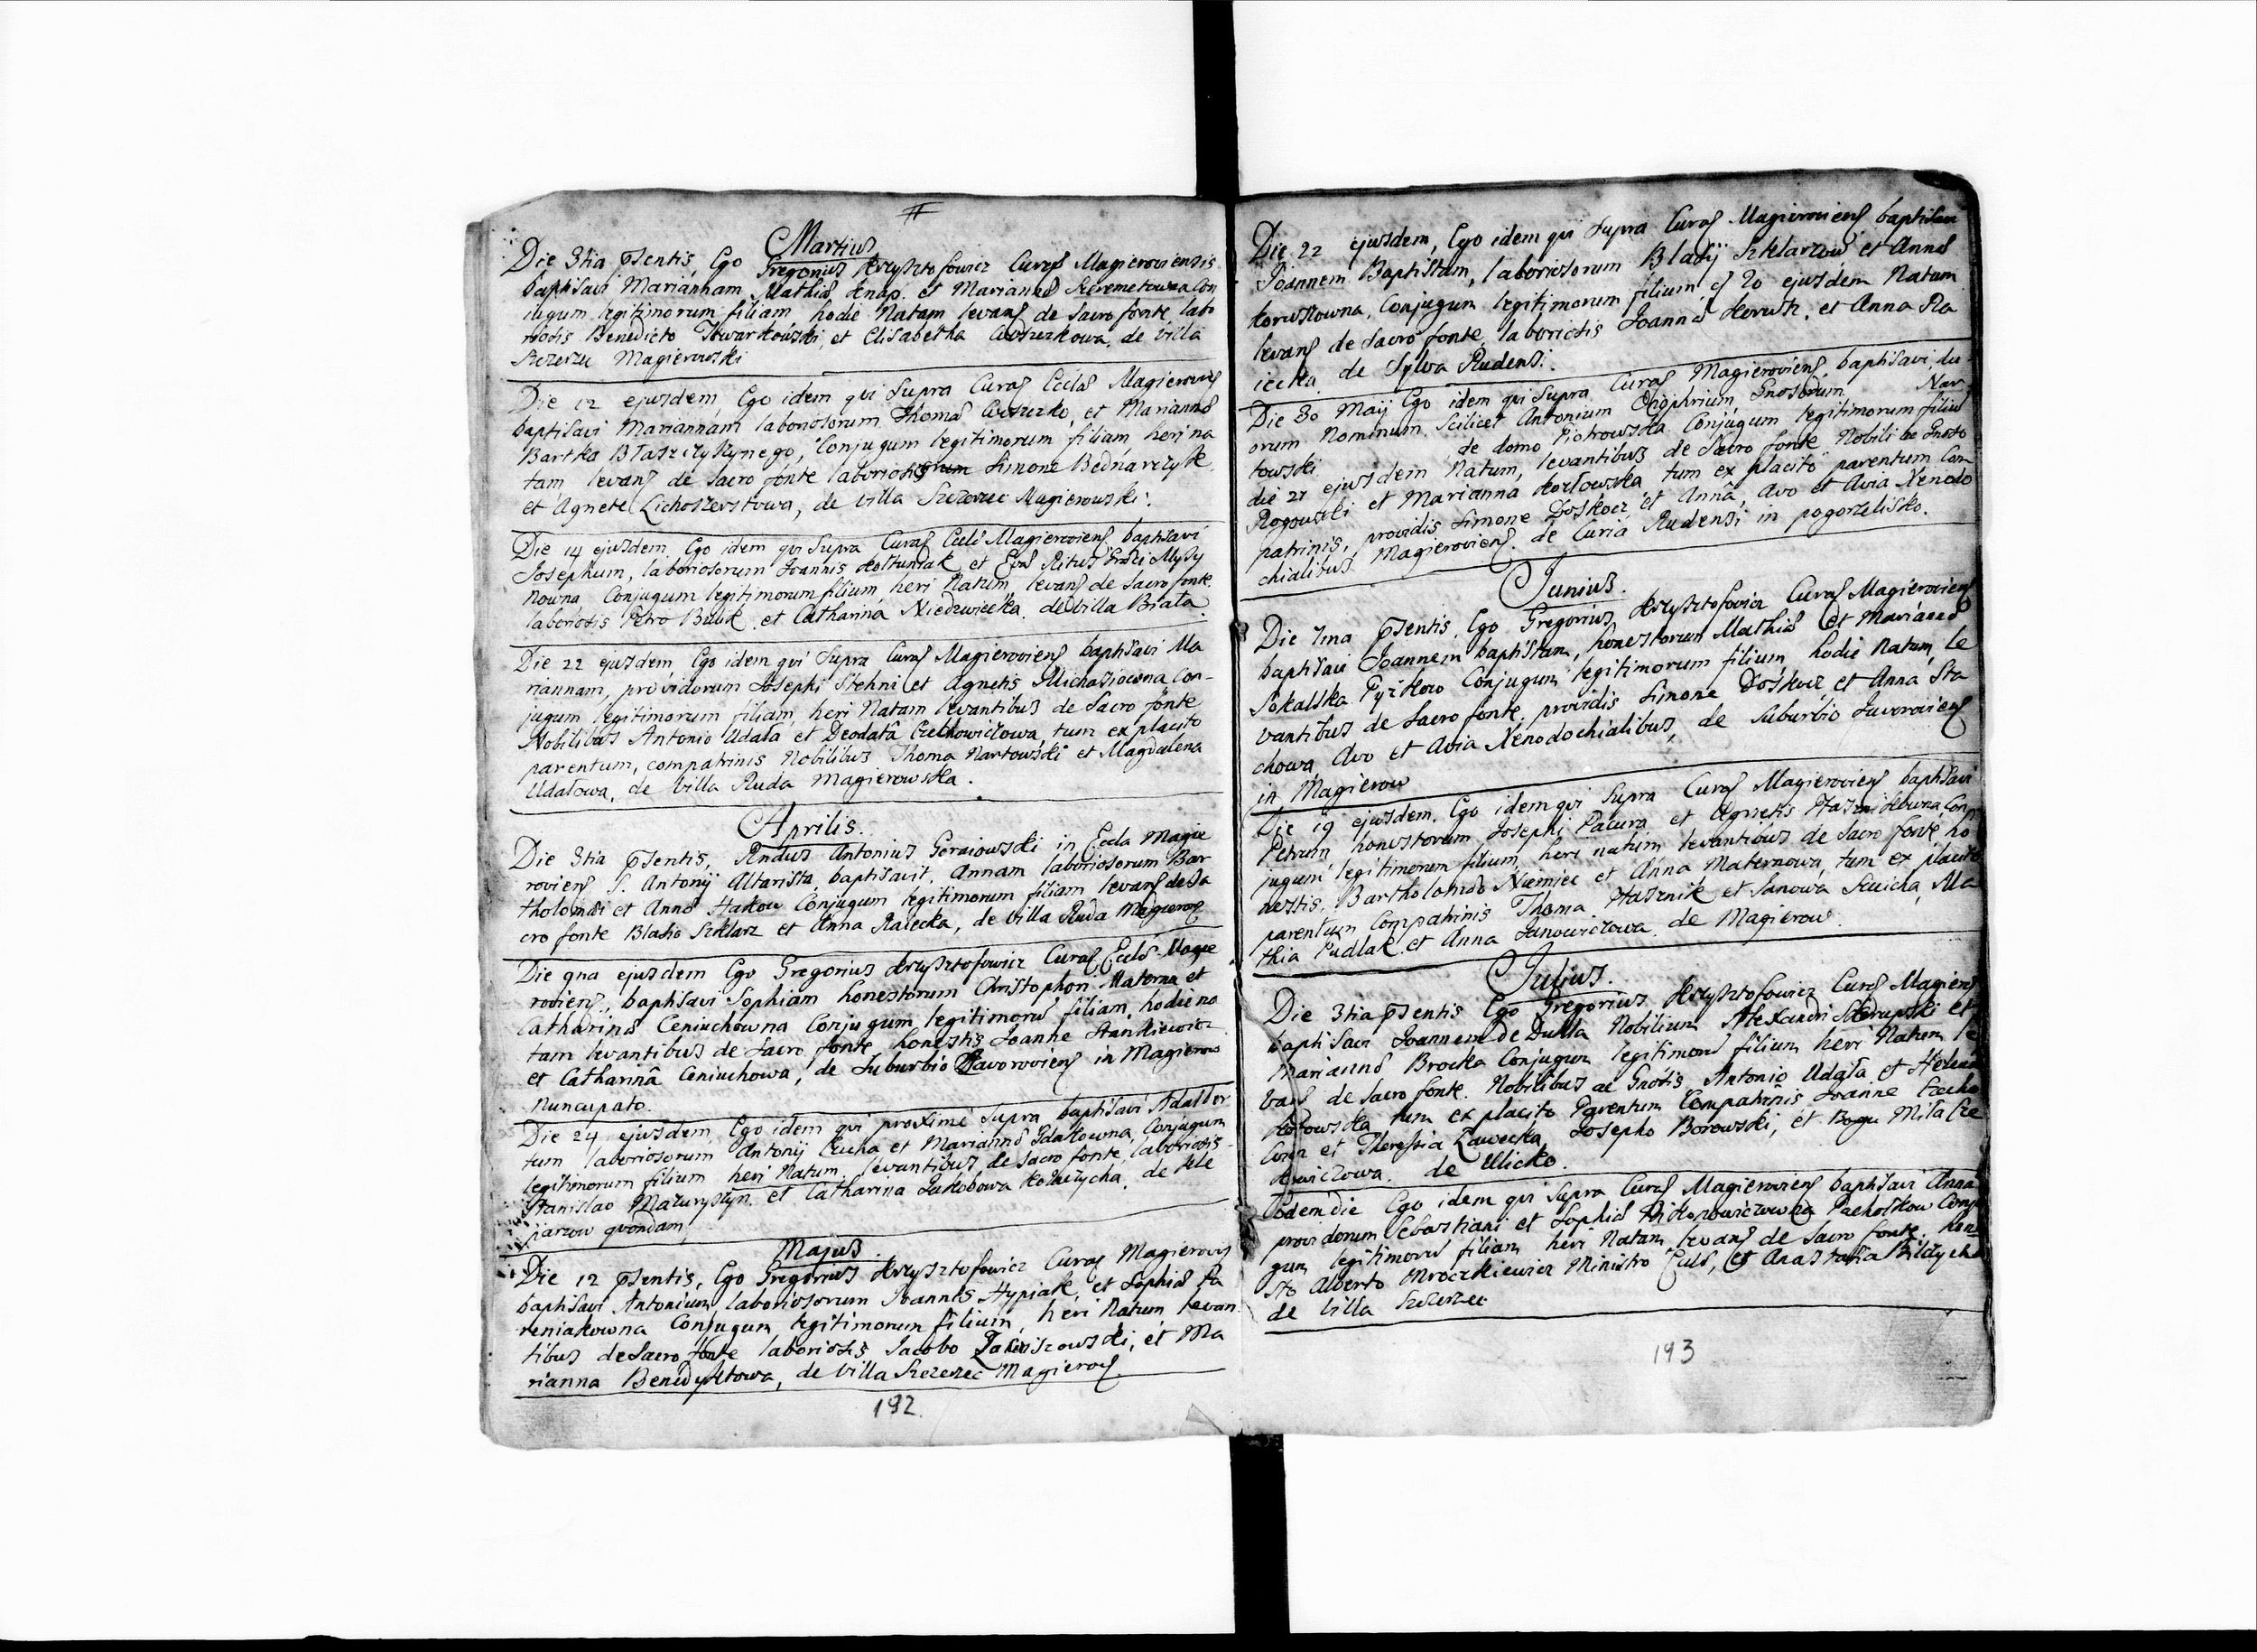 Martius
Die 3tia psentis, Ego Gregorius Krzysztofowicz Curats Magieroviensis
baptisavi Mariannam Mathiæ Knap. et Mariannæ Szeremetowna Con
iugum legitimorum filiam hodie Natam levans de Sacro fonte labo
riosis Benedicto Twarkowski, et Elisabetha de villa
Szczerzec Magierowski
Die 12 ejusdem Ego idem qui Supra Curats Eccla Magieroviens
baptisavi Mariannam laboriosorum Thomæ et Mariannæ
Bartka Błaszczyszynego, Conjugum legitimorum filiam heri na
tam levans de Sacro fonte laboriosis Simone Bednarczyk
et Agnete Lichoszerstowa, de villa Szczerzec Magierowski.
Die 14 ejusdem, Ego idem qui Supra Curats Magieroviens baptisavi
Josephum, laboriosorum Joannis Kołtuniak et Evæ Ritus Græci Mysy
nowna Conjugum legitimorum filium heri Natum levans de Sacro fonte
laboriosis Petro Bulik et Catharina Niedzwiecka de villa Biała.
Die 22 ejusdem, Ego idem qui Supra Curats Magieroviens baptisavi Ma
riannam, providorum Josephi Stehni et Agnetis Michasiowna Con-
jugum legitimorum filiam, heri Natam levantibus de Sacro fonte
Nobilibus Antonio Udała et Deodata Czechowiczowa, tum ex placito
parentum, compatrinis Nobilibus Thoma Nartowski et Magdalena
Udałowa, de villa Ruda Magierowska.
Aprilis.
Die 3tia psentis, Rndus Antonius Geraiowski in Eccla Magie
roviens S. Antonij Altarista baptisavit Annam laboriosorum Bar
tholomæi et Annæ Hakow Conjugum legitimorum filiam levans de Sa
cro fonte Blasio Szklarz et Anna Ralecka, de villa Ruda Magierows
Die 9na ejusdem Ego Gregorius Krzysztofowicz Curats Magie
roviens, baptisavi Sophiam honestorum Christophori Materna et
Catharinæ Ceniuchowna Conjugum legitimorum filiam, hodie na
tam levantibus de Sacro fonte honestis Joanne Stankiewicz
et Catharinâ Ceniuchowa, de Suburbio Jaworoviens in Magierow
Nuncupato.
Die 24 ejusdem, Ego idem qui proximè Supra baptisavi Adalber
tum laboriosorum Antonij Cucha et Mariannæ Conjugum
legitimorum filium heri Natum, levantibus de Sacro fonte, laboriosis
Stanislao Mazuryszyn et Catharina Jakobowa de Kle
parow quondam,
Majus.
Die 12 psentis, Ego Gregorius Krzysztofowicz Curats Magieroviens
baptisavi Antonium, laboriosorum Joannis Hypiak, et Sophiæ Pa
reniakowna Conjugum legitimorum filium, heri Natum, levan
tibus de Sacro fonte laboriosis Jacobo et Ma
rianna Benedyktowa, de villa Szczerzec Magierows.
192.
Die 22 ejusdem, Ego idem qui Supra Curats Magieroviens baptisavi
Joannem Baptistam, laboriosorum Blasij Szklarzow et Annæ
Korustowna, Conjugum legitimorum filium, d 20 ejusdem Natum
levans de Sacro fonte, laboriosis Joanne et Anna Ra
lecka de Sylva Rudensi.
Die 30 Maij Ego idem qui Supra Curats Magieroviens, baptisavi, du
orum Nominum Scilicet Antonium Onophrium, Gnosorum Nar
towski de domo Piotrowska Conjugum legitimorum filiū
die 21 ejusdem Natum, levantibus de Sacro fonte Nobili ac Gnoso
Rogowski et Marianna Kozłowska tum ex placito parentum Com
patrinis, providis Simone Doskocz et Annâ, Avo et Avia Xenodo
chialibus Magieroviens. de Curia Rudensi in pogorzelisko.
Junius.
Die 7ma psentis, Ego Gregorius Krzysztofowicz Curats Magieroviens
baptisavi Joannem baptistam, honestorum Mathiæ et Mariannæ
Sokalska Pyzikow Conjugum legitimorum filium, hodie Natum, le
vantibus de Sacro fonte, providis Simone Doskocz et Anna Sta
chowa Avo et Avia Xenodochialibus, de Suburbio Javoroviens
in Magierow
Die 19 ejusdem, Ego idem qui Supra Curats Magieroviens baptisavi
Petrum, honestorum Josephi Pacura et Agnetis Con
jugum legitimorum filium, heri natum levantibus de Sacro fonte, ho
nestis, Bartholomæo Niemiec et Anna Maternowa, tum ex placito
parentum Compatrinis Thoma Ptasznik et Janowa Ma
thia Pudlak et Anna Janowiczowa de Magierow.
Julius.
Die 3tia psentis Ego Gregorius Krzysztofowicz Curats Magieros
baptisavi Joannem de Dukla Nobilium Alexandri et
Mariannæ Brocka Conjugum legitimorū filium heri Natum le
vans de Sacro fonte. Nobilibus ac Gnosis Antonio Udała et Helena
Kotowska tum ex placito Parentum Compatrinis Joanne Czecho
et Theresia Zawecka, Josepho Borowski, et Bogu Miła Cze
de Ulicko.
Eodem die Ego idem qui Supra Curats Magieroviens baptisavi Annā
providorum Sebastiani et Sophiæ Pachołkow Conju
gum legitimorū filiam heri Natam levans de Sacro fonte, hone
sto Alberto Mroczkiewicz Ministro Eccls, et Anastasia Bildycha
de villa Szczerzec
193